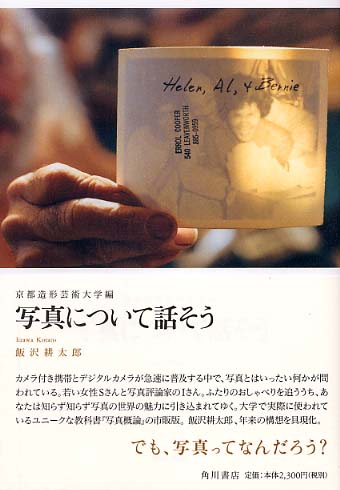 Helen, Al, & Bernie
ERROL COOFER
540 LEAVENWORTH
885-0959
京都造形芸術大学編
写真について話そう
Iizawa Kotaro
飯沢耕太郎
カメラ付き携帯とデジタルカメラが急速に普及する中で、写真とはいったい何かが問
われている。若い女性Sさんと写真評論家のIさん。ふたりのおしゃべりを追ううち、あ
なたは知らず知らず写真の世界の魅力に引き込まれてゆく。大学で実際に使われて
いるユニークな教科書『写真概論』の市販版。飯沢耕太郎、年来の構想を具現化。
でも、写真ってなんだろう？
角川書店 定価：本体2,300円（税別）